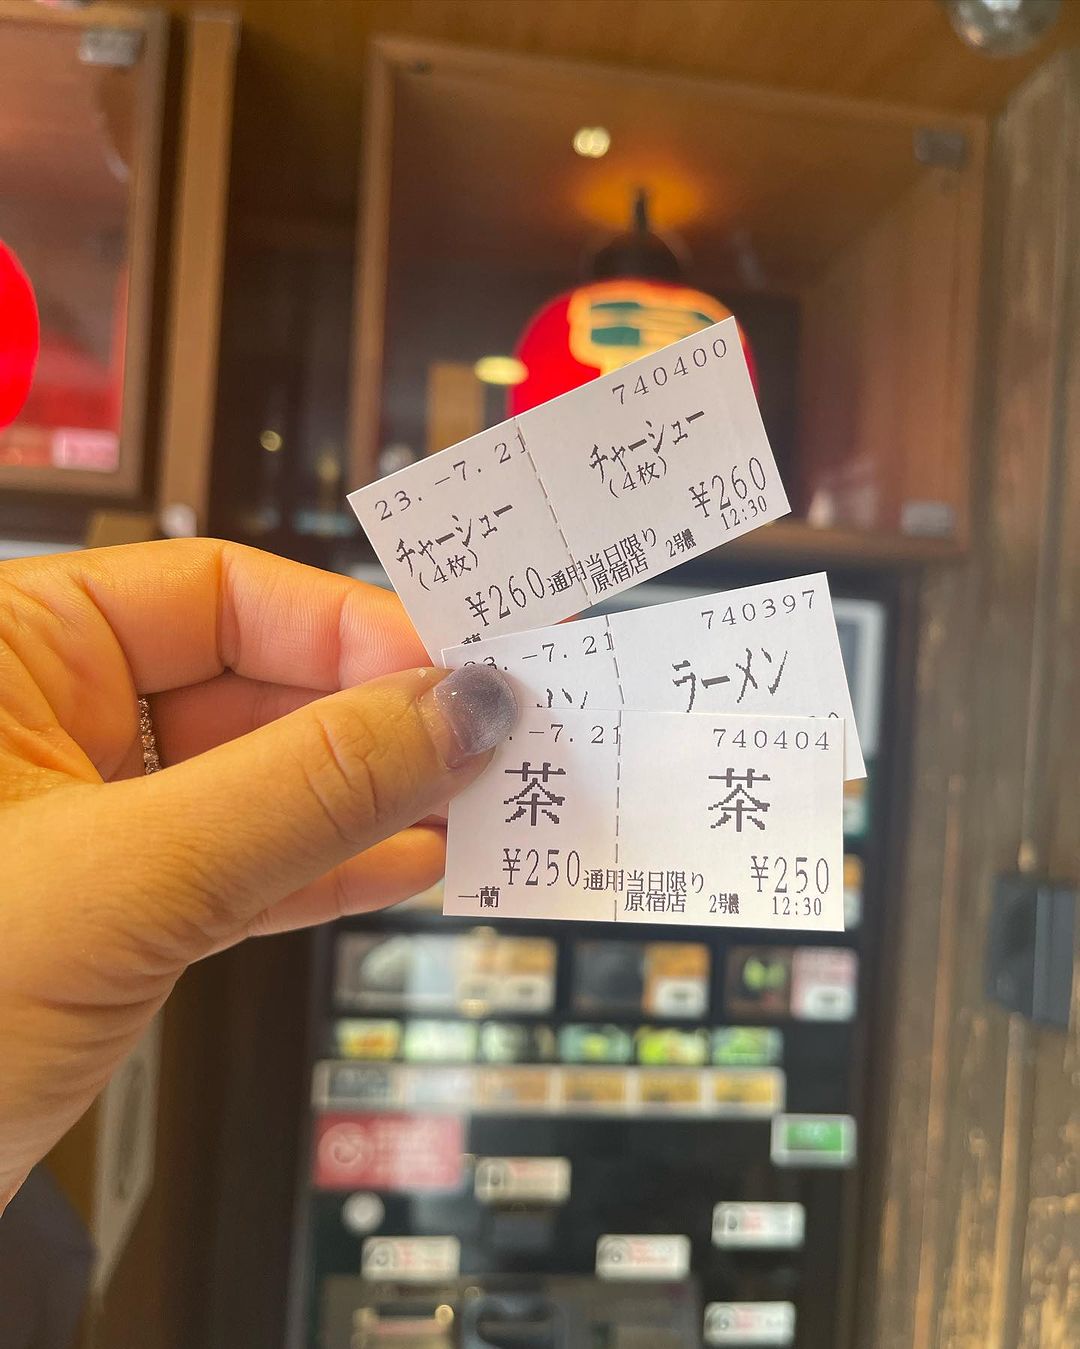 23.-7.21
740400
チャーシュー
(4枚)
チャーシュー
(4枚)
¥260
¥260
通用当日限り
原宿店
2号機
12:30
-7.21
740397
ラーメン
-7.21
740404
茶
茶
¥250
¥250
通用当日限り
一蘭
原宿店
2号機
12:30